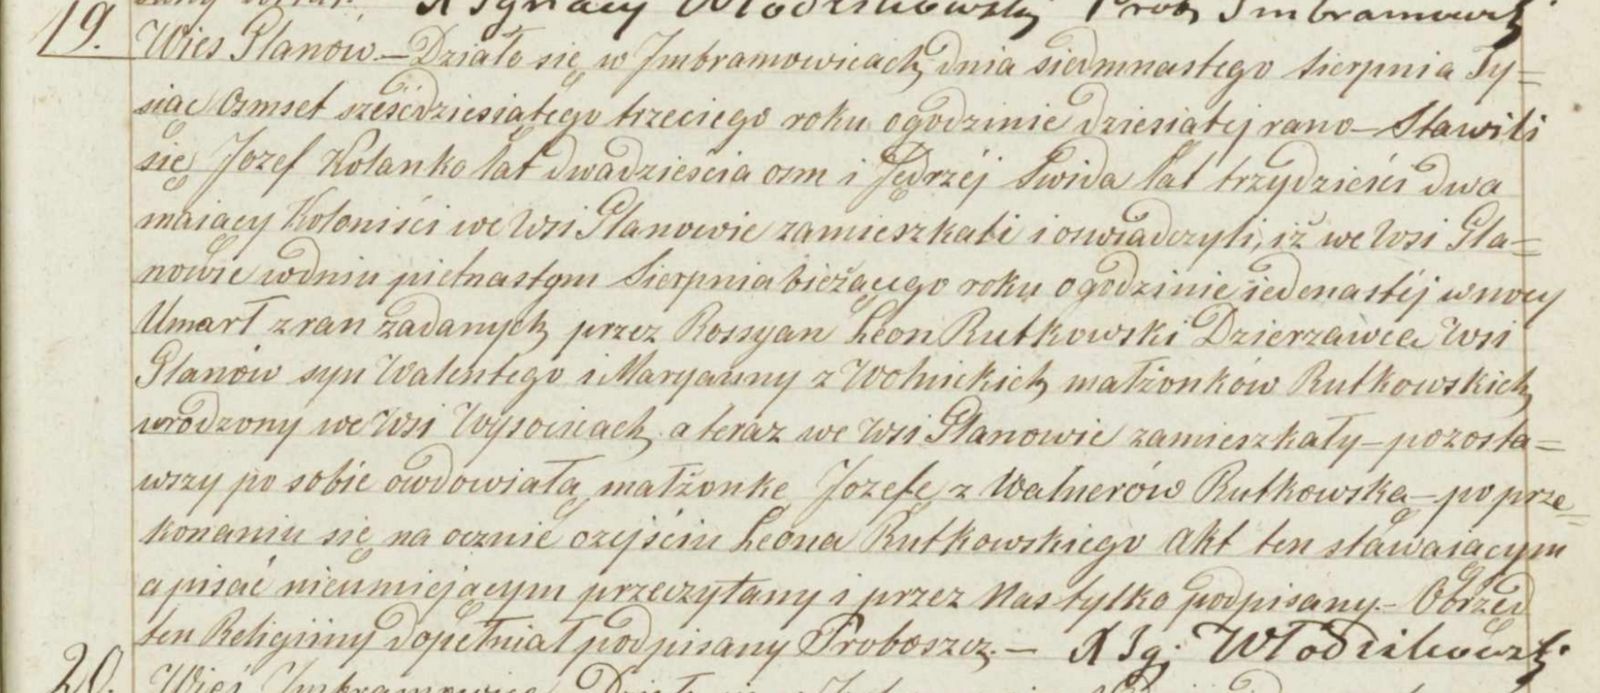 X Ignacy Włodzikowski Prob. Imbramowski
19. Wieś Glanów. — Działo się w Imbramowicach dnia siedmnastego Sierpnia Ty=
siąc Ośmset sześćdziesiątego trzeciego roku ogodzinie dziesiątej rano — Stawili
się Jozef Kolanko lat dwadzieścia ośm i Jędrzéj Swida lat trzydzieści dwa
maiący Koloniści we Wsi Glanowie zamieszkali i oswiadczyli, iż we Wsi Gla=
nowie wdniu piętnastym Sierpnia bieżącego roku ogodzinie iedenastéj wnocy
Umarł zran zadanych przez Rossyan Leon Rutkowski Dzierzawca Wsi
Glanów syn Walentego i Maryanny z Wolnickich małżonków Rutkowskich
urodzony we Wsi Wysocicach a teraz we Wsi Glanowie zamieszkały — pozosta=
wszy po sobie owdowiałą małżonkę Jozefę z Walnerów Rutkowską — po prze=
konaniu się na ocznie ozejściu Leona Rutkowskiego akt ten stawaiącym
a pisać nieumiejącym przeczytany i przez Nas tylko podpisany. — Obrzęd
ten Religiiny dopełniał podpisany Proboszcz. — X Ig. Włodzikowski
20. Wieś Imbramowice